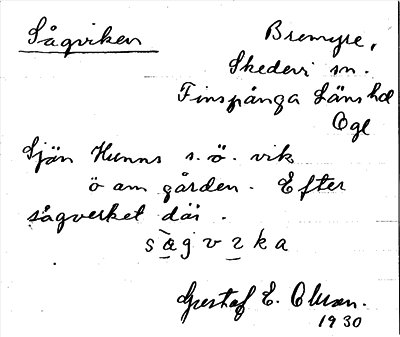 Sågviken
Bremyre,
Skedevi sn.
Finspånga Läns hd
Ögl
Sjön Hunns s.ö. vik
ö om gården. Efter
sågverket där.
sågvika
Gustaf E. Olsson.
1930